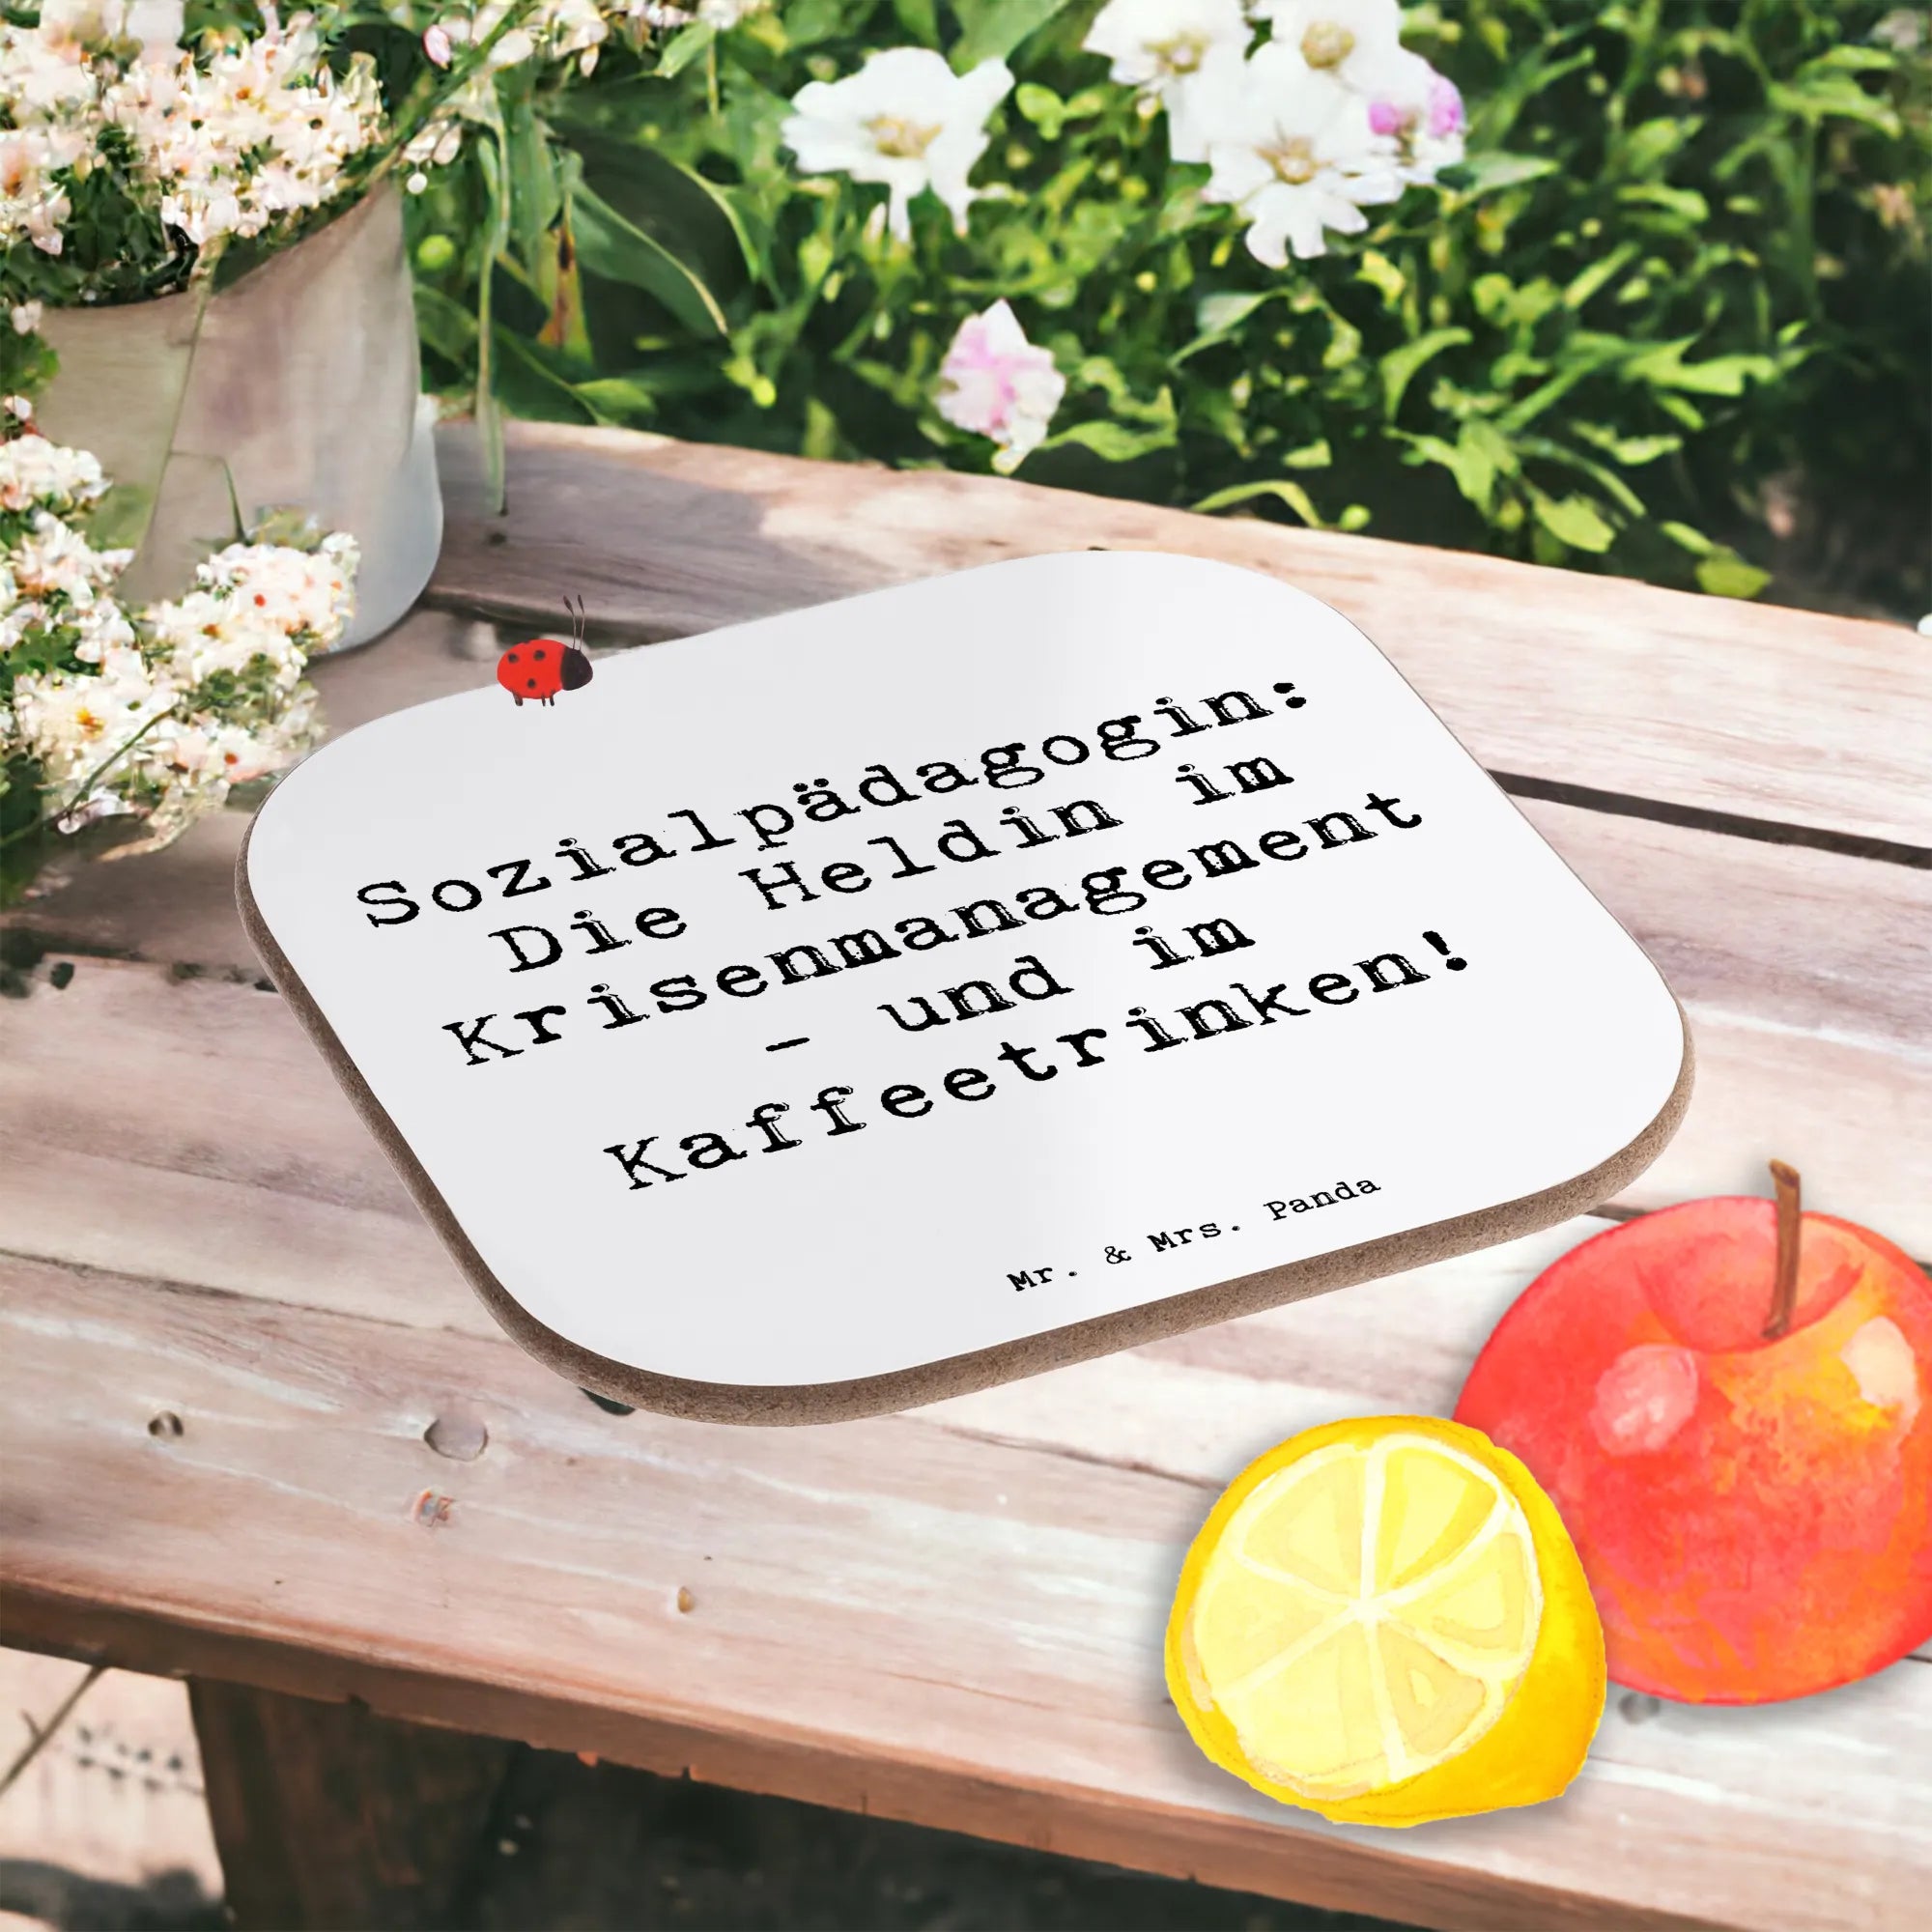 Sozialpädagogin:
Die Heldin im
Krisenmanagement
- und im
Kaffeetrinken!
Mr. & Mrs. Panda